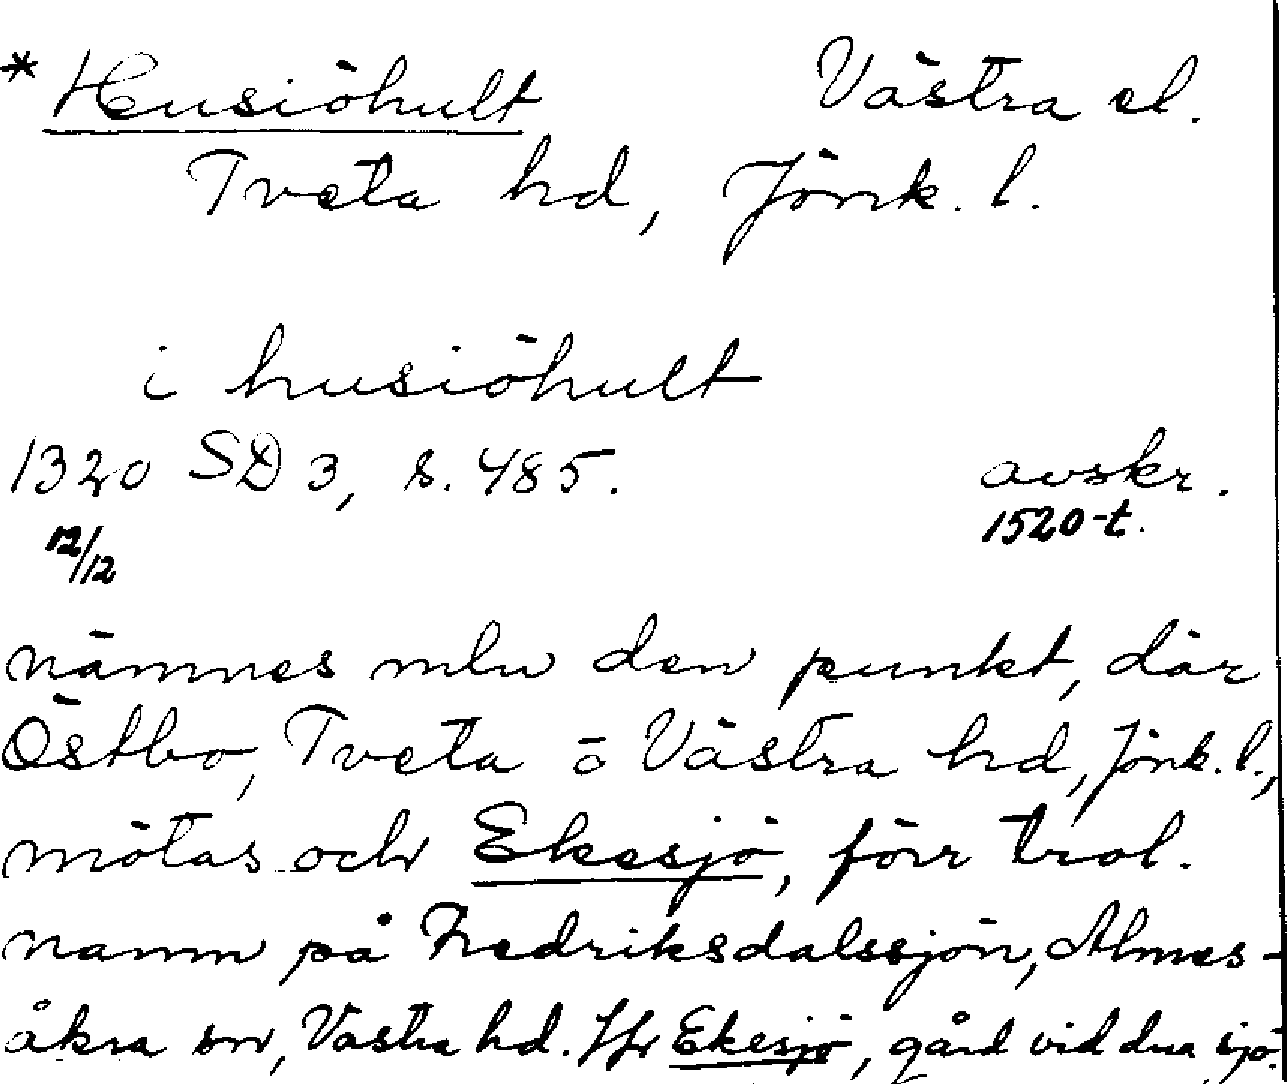 * Husiöhult Västra el.
Tveta hd, Jönk. l.
i husiöhult
1320 SD 3, s. 485. avskr.
12/12 1520-t.
nämnes mln den punkt, där
Östbo, Tveta o Västra hd, Jönk. l.,
mötas och Ekesjö, förr trol.
namn på Fredriksdalssjön, Almes-
åkra sn, Västra hd. Jfr Ekesjö, gård vid dna sjö.